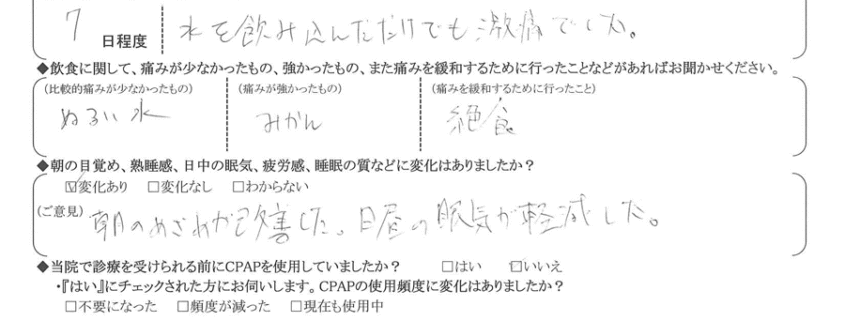 7 日程度 水を飲み込んだだけでも激痛でした。
◆飲食に関して、痛みが少なかったもの、強かったもの、また痛みを緩和するために行ったことなどがあればお聞かせください。
(比較的痛みが少なかったもの) (痛みが強かったもの) (痛みを緩和するために行ったこと)
ぬるい水 みかん 絶食
◆朝の目覚め、熟睡感、日中の眠気、疲労感、睡眠の質などに変化はありましたか?
☑変化あり □変化なし □わからない
(ご意見) 朝のめざめが改善した。日昼の眠気が軽減した。
◆当院で診療を受けられる前にCPAPを使用していましたか? □はい □いいえ
・『はい』にチェックされた方にお伺いします。CPAPの使用頻度に変化はありましたか?
□不要になった □頻度が減った □現在も使用中